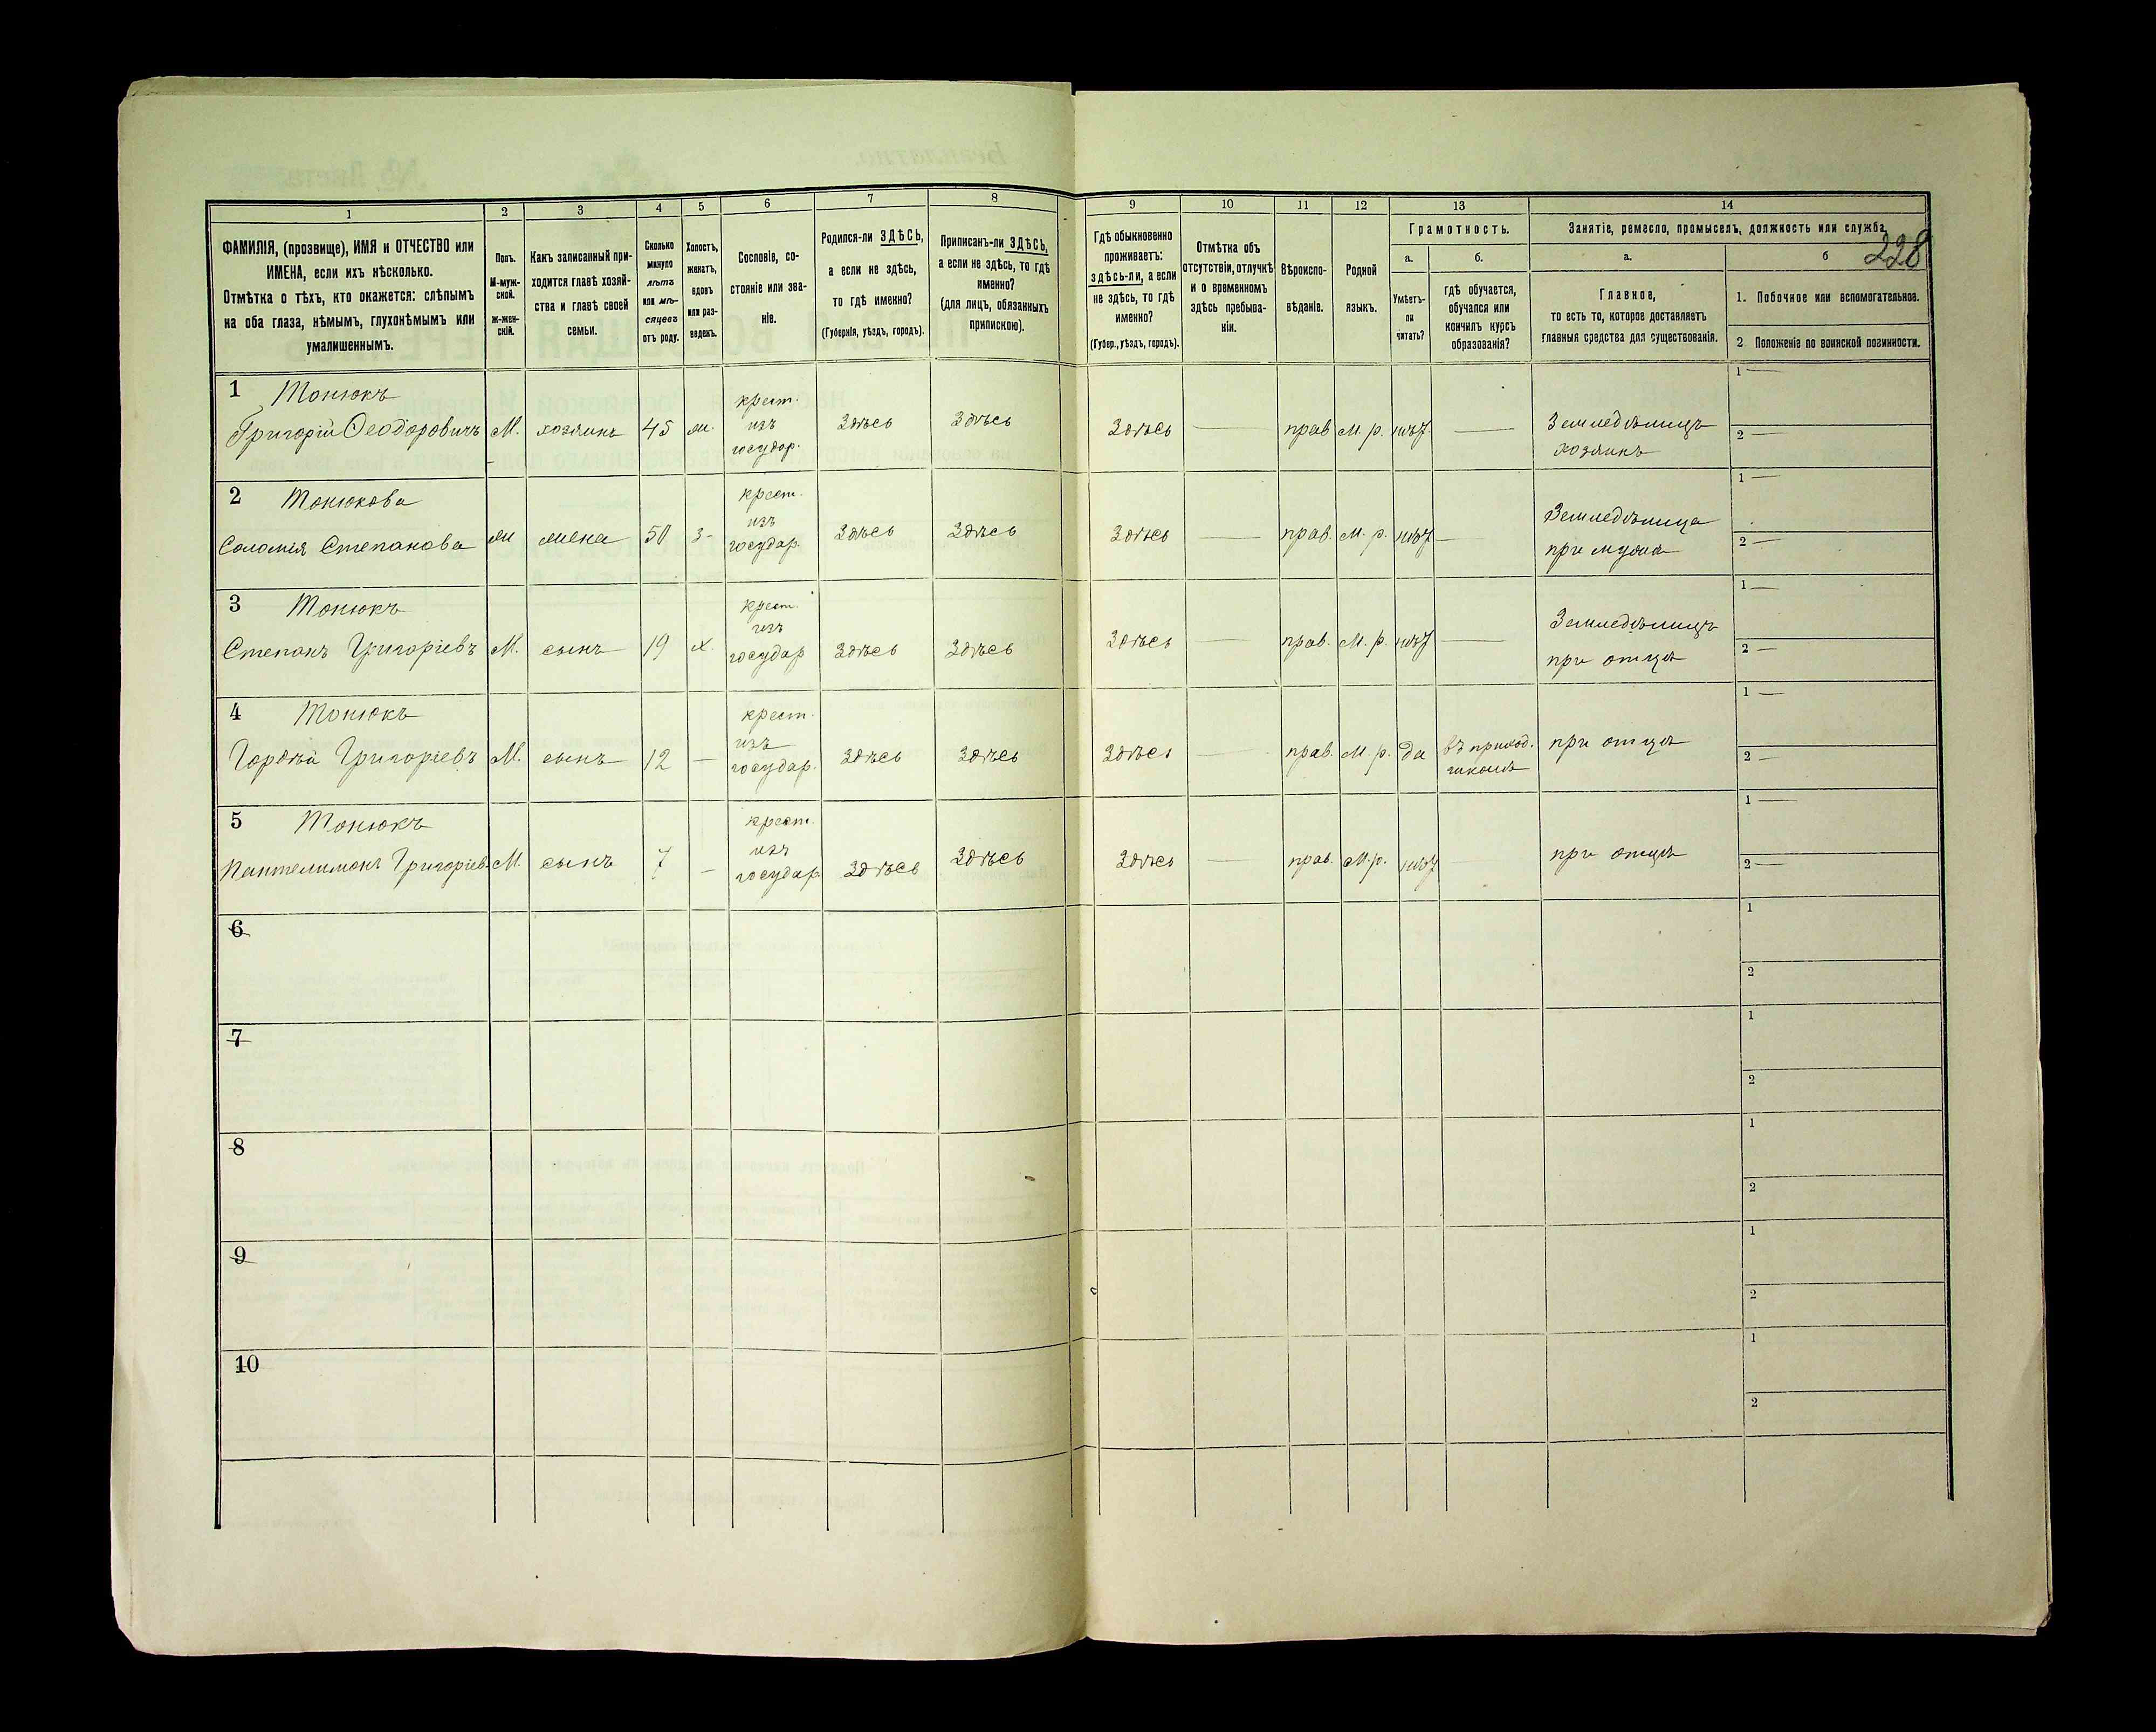 228
1 2 3 4 5 6 7 8 9 10 11 12 13 14
ФАМИЛІЯ, (прозвище), ИМЯ и ОТЧЕСТВО или
ИМЕНА, если ихъ нѣсколько.
Отмѣтка о тѣхъ, кто окажется: слѣпымъ
на оба глаза, нѣмымъ, глухонѣмымъ или
умалишеннымъ.
Полъ.
М-муж-
ской.
ж-жен-
скій.
Какъ записанный при-
ходится главѣ хозяй-
ства и главѣ своей
семьи.
Сколько
минуло
лѣтъ
или мѣ-
сяцевъ
отъ роду.
Холостъ,
женатъ,
вдовъ
или раз-
веденъ.
Сословіе, со-
стояніе или зва-
ніе.
Родился-ли ЗДѢСЬ,
а если не здѣсь,
то гдѣ именно?
(Губернія, уѣздъ, городъ).
Приписанъ-ли ЗДѢСЬ,
а если не здѣсь, то гдѣ
именно?
(для лицъ, обязанныхъ
припискою).
Гдѣ обыкновенно
проживаетъ:
здѣсь-ли, а если
не здѣсь, то гдѣ
именно?
(Губер., уѣздъ, городъ).
Отмѣтка объ
отсутствіи, отлучкѣ
и о временномъ
здѣсь пребыва-
ніи.
Вѣроиспо-
вѣданіе.
Родной
языкъ.
Грамотность.
а.
Умѣетъ-
ли
читать?
б.
гдѣ обучается,
обучался или
кончилъ курсъ
образованія?
Занятіе, ремесло, промыселъ, должность или служба.
а.
Главное,
то есть то, которое доставляетъ
главныя средства для существованія.
б
1. Побочное или вспомогательное.
2 Положеніе по воинской повинности.
1 Тонюкъ
Григорій Ѳеодоровичъ М. хозяинъ 45 ж. крест. изъ государ. Здѣсь Здѣсь Здѣсь — прав. м. р. нѣт — Земледѣлецъ хозяинъ
1 —
2 —
2 Тонюкова
Соломія Степанова ж жена 50 з- крест. изъ государ. Здѣсь Здѣсь Здѣсь — прав. м. р. нѣт — Земледѣлица при мужѣ
1 —
2 —
3 Тонюкъ
Степанъ Григоріевъ М. сынъ 19 х. крест. изъ государ Здѣсь Здѣсь Здѣсь — прав. м. р. нѣт — Земледѣлецъ при отцѣ
1 —
2 —
4 Тонюкъ
Гордѣй Григоріевъ М. сынъ 12 — крест. изъ государ. Здѣсь Здѣсь Здѣсь — прав. м. р. да въ приход. школѣ при отцѣ
1 —
2 —
5 Тонюкъ
Пантелимонъ Григоріев. М. сынъ 7 — крест. изъ государ. Здѣсь Здѣсь Здѣсь — прав. м. р. нѣт при отцѣ
1 —
2 —
6
1
2
7
1
2
8
1
2
9
1
2
10
1
2